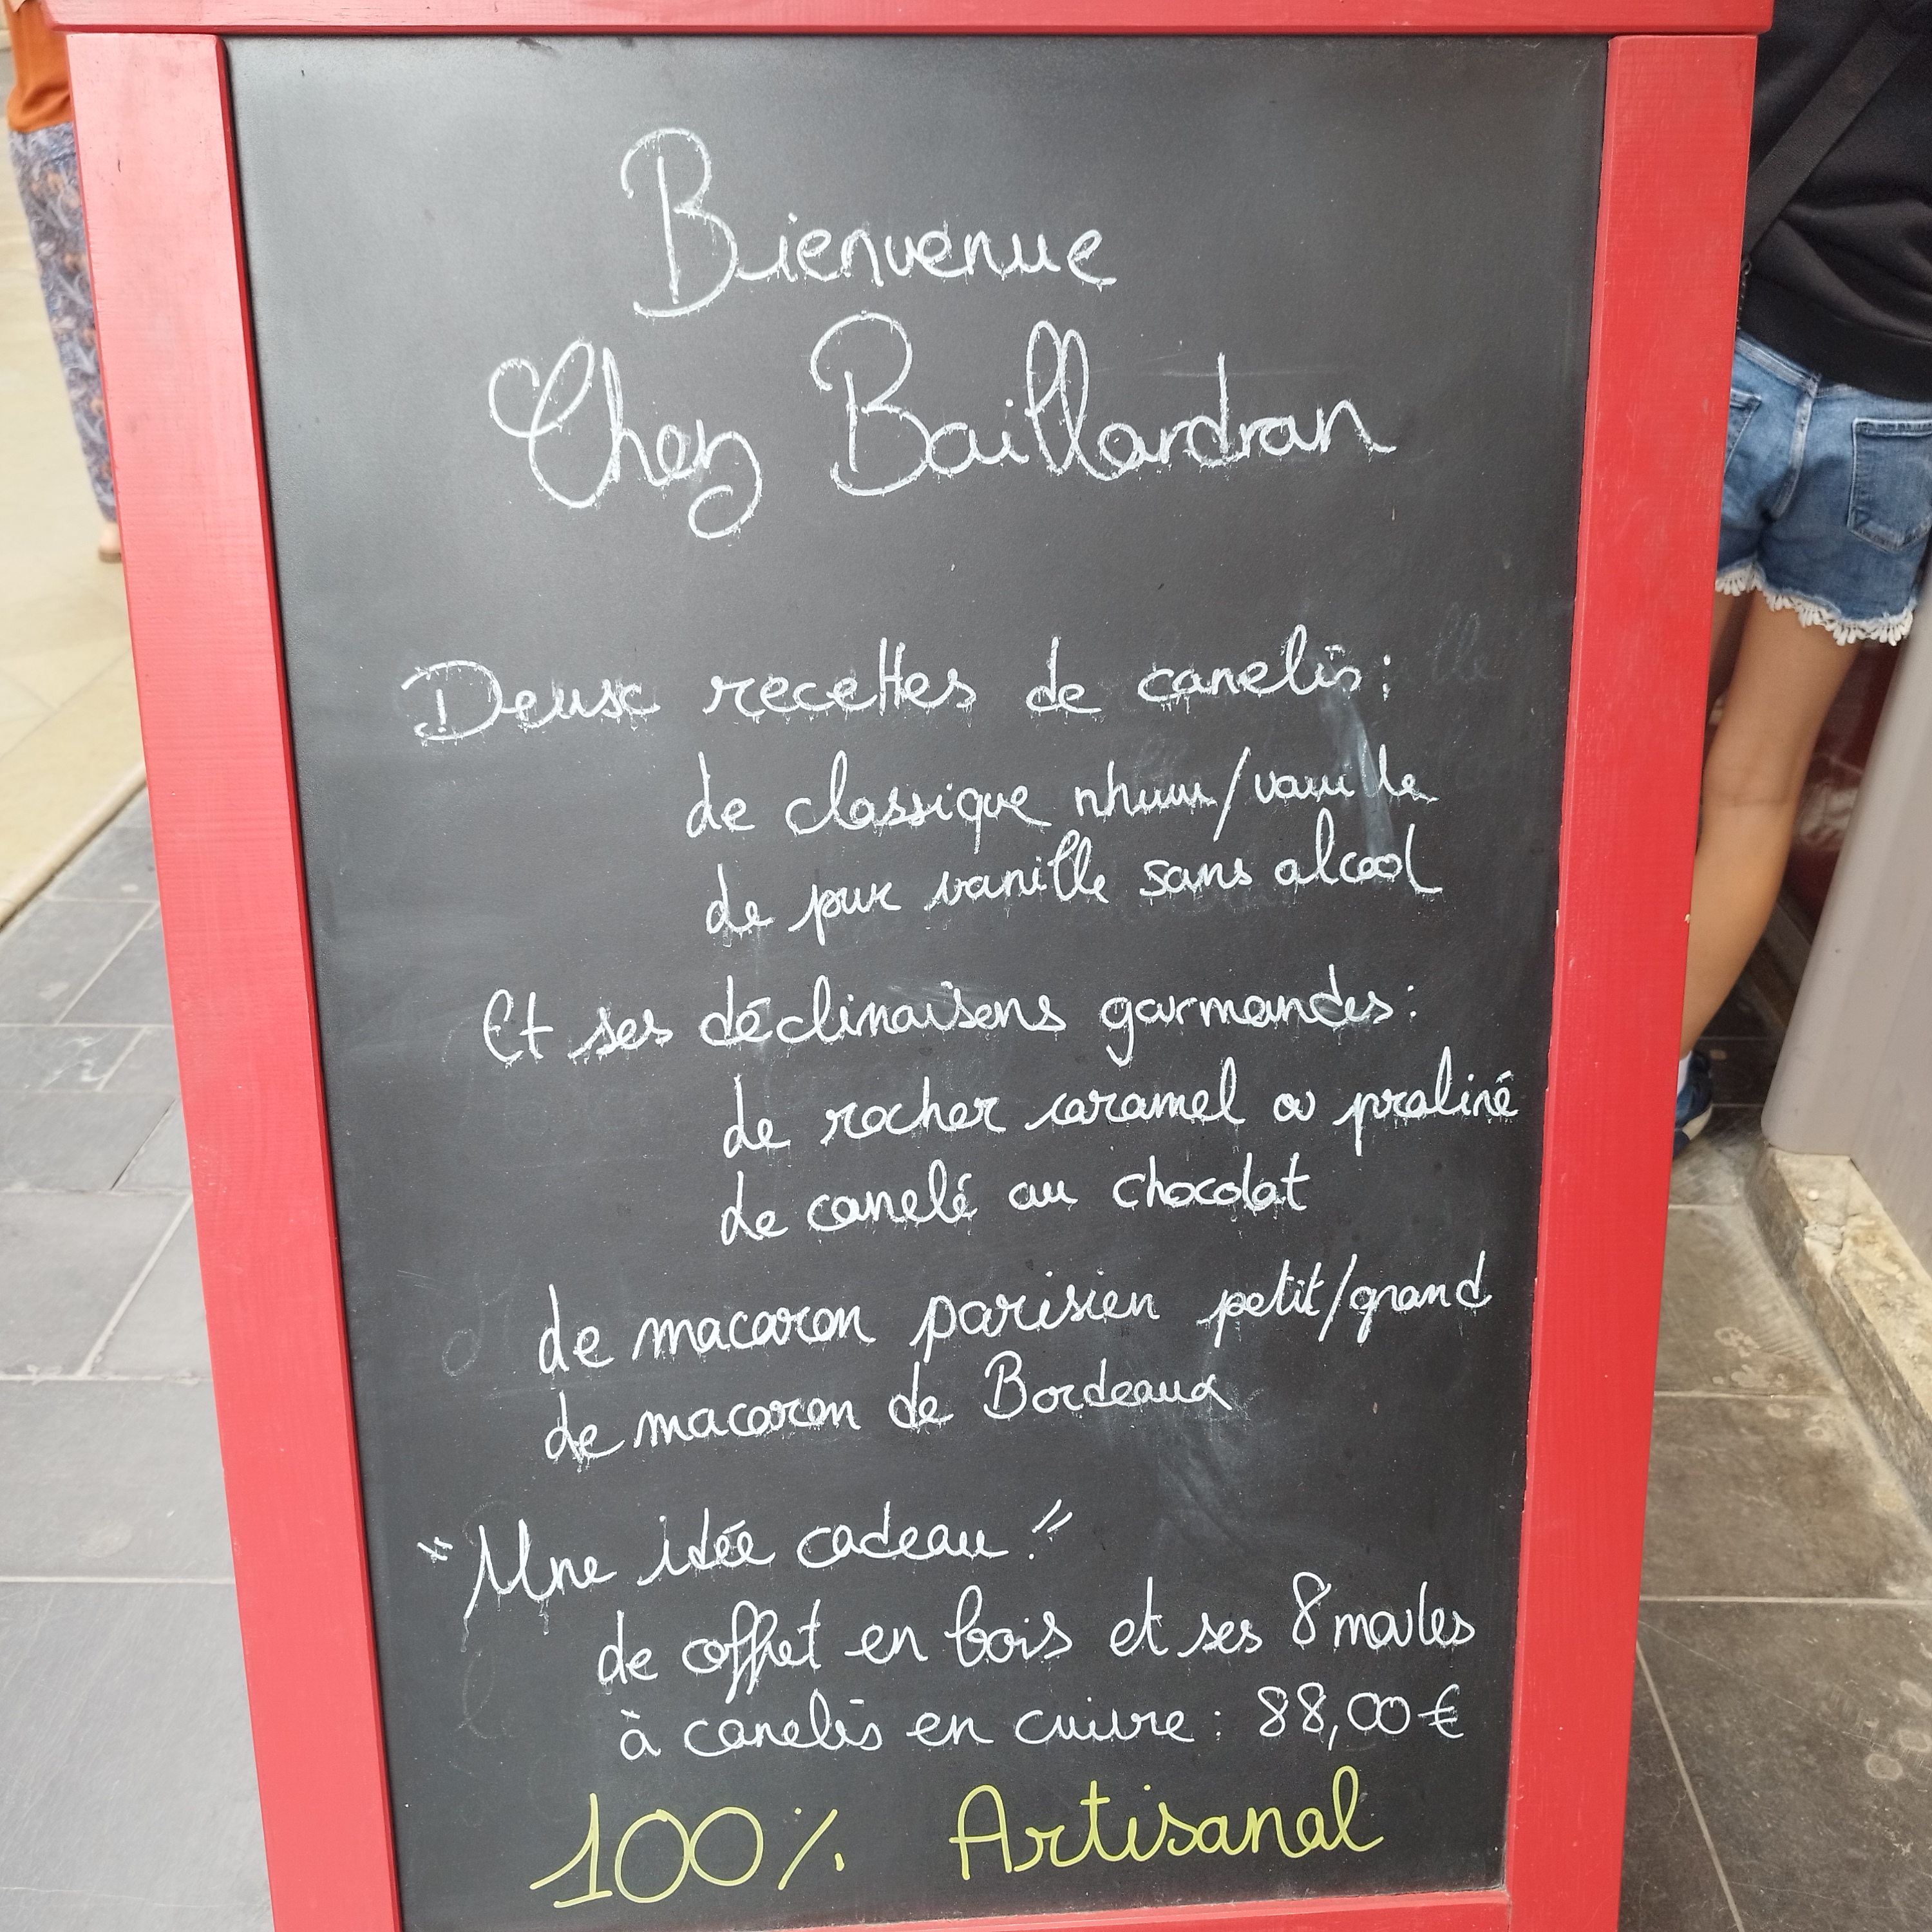 Bienvenue
Chez Baillardran
Deux recettes de canelés :
de classique rhum/vanille
de pur vanille sans alcool
Et ses déclinaisons gourmandes :
de rocher caramel ou praliné
de canelé au chocolat
de macaron parisien petit/grand
de macaron de Bordeaux
"Une idée cadeau !"
de coffret en bois et ses 8 moules
à canelés en cuivre : 88,00 €
100% Artisanal